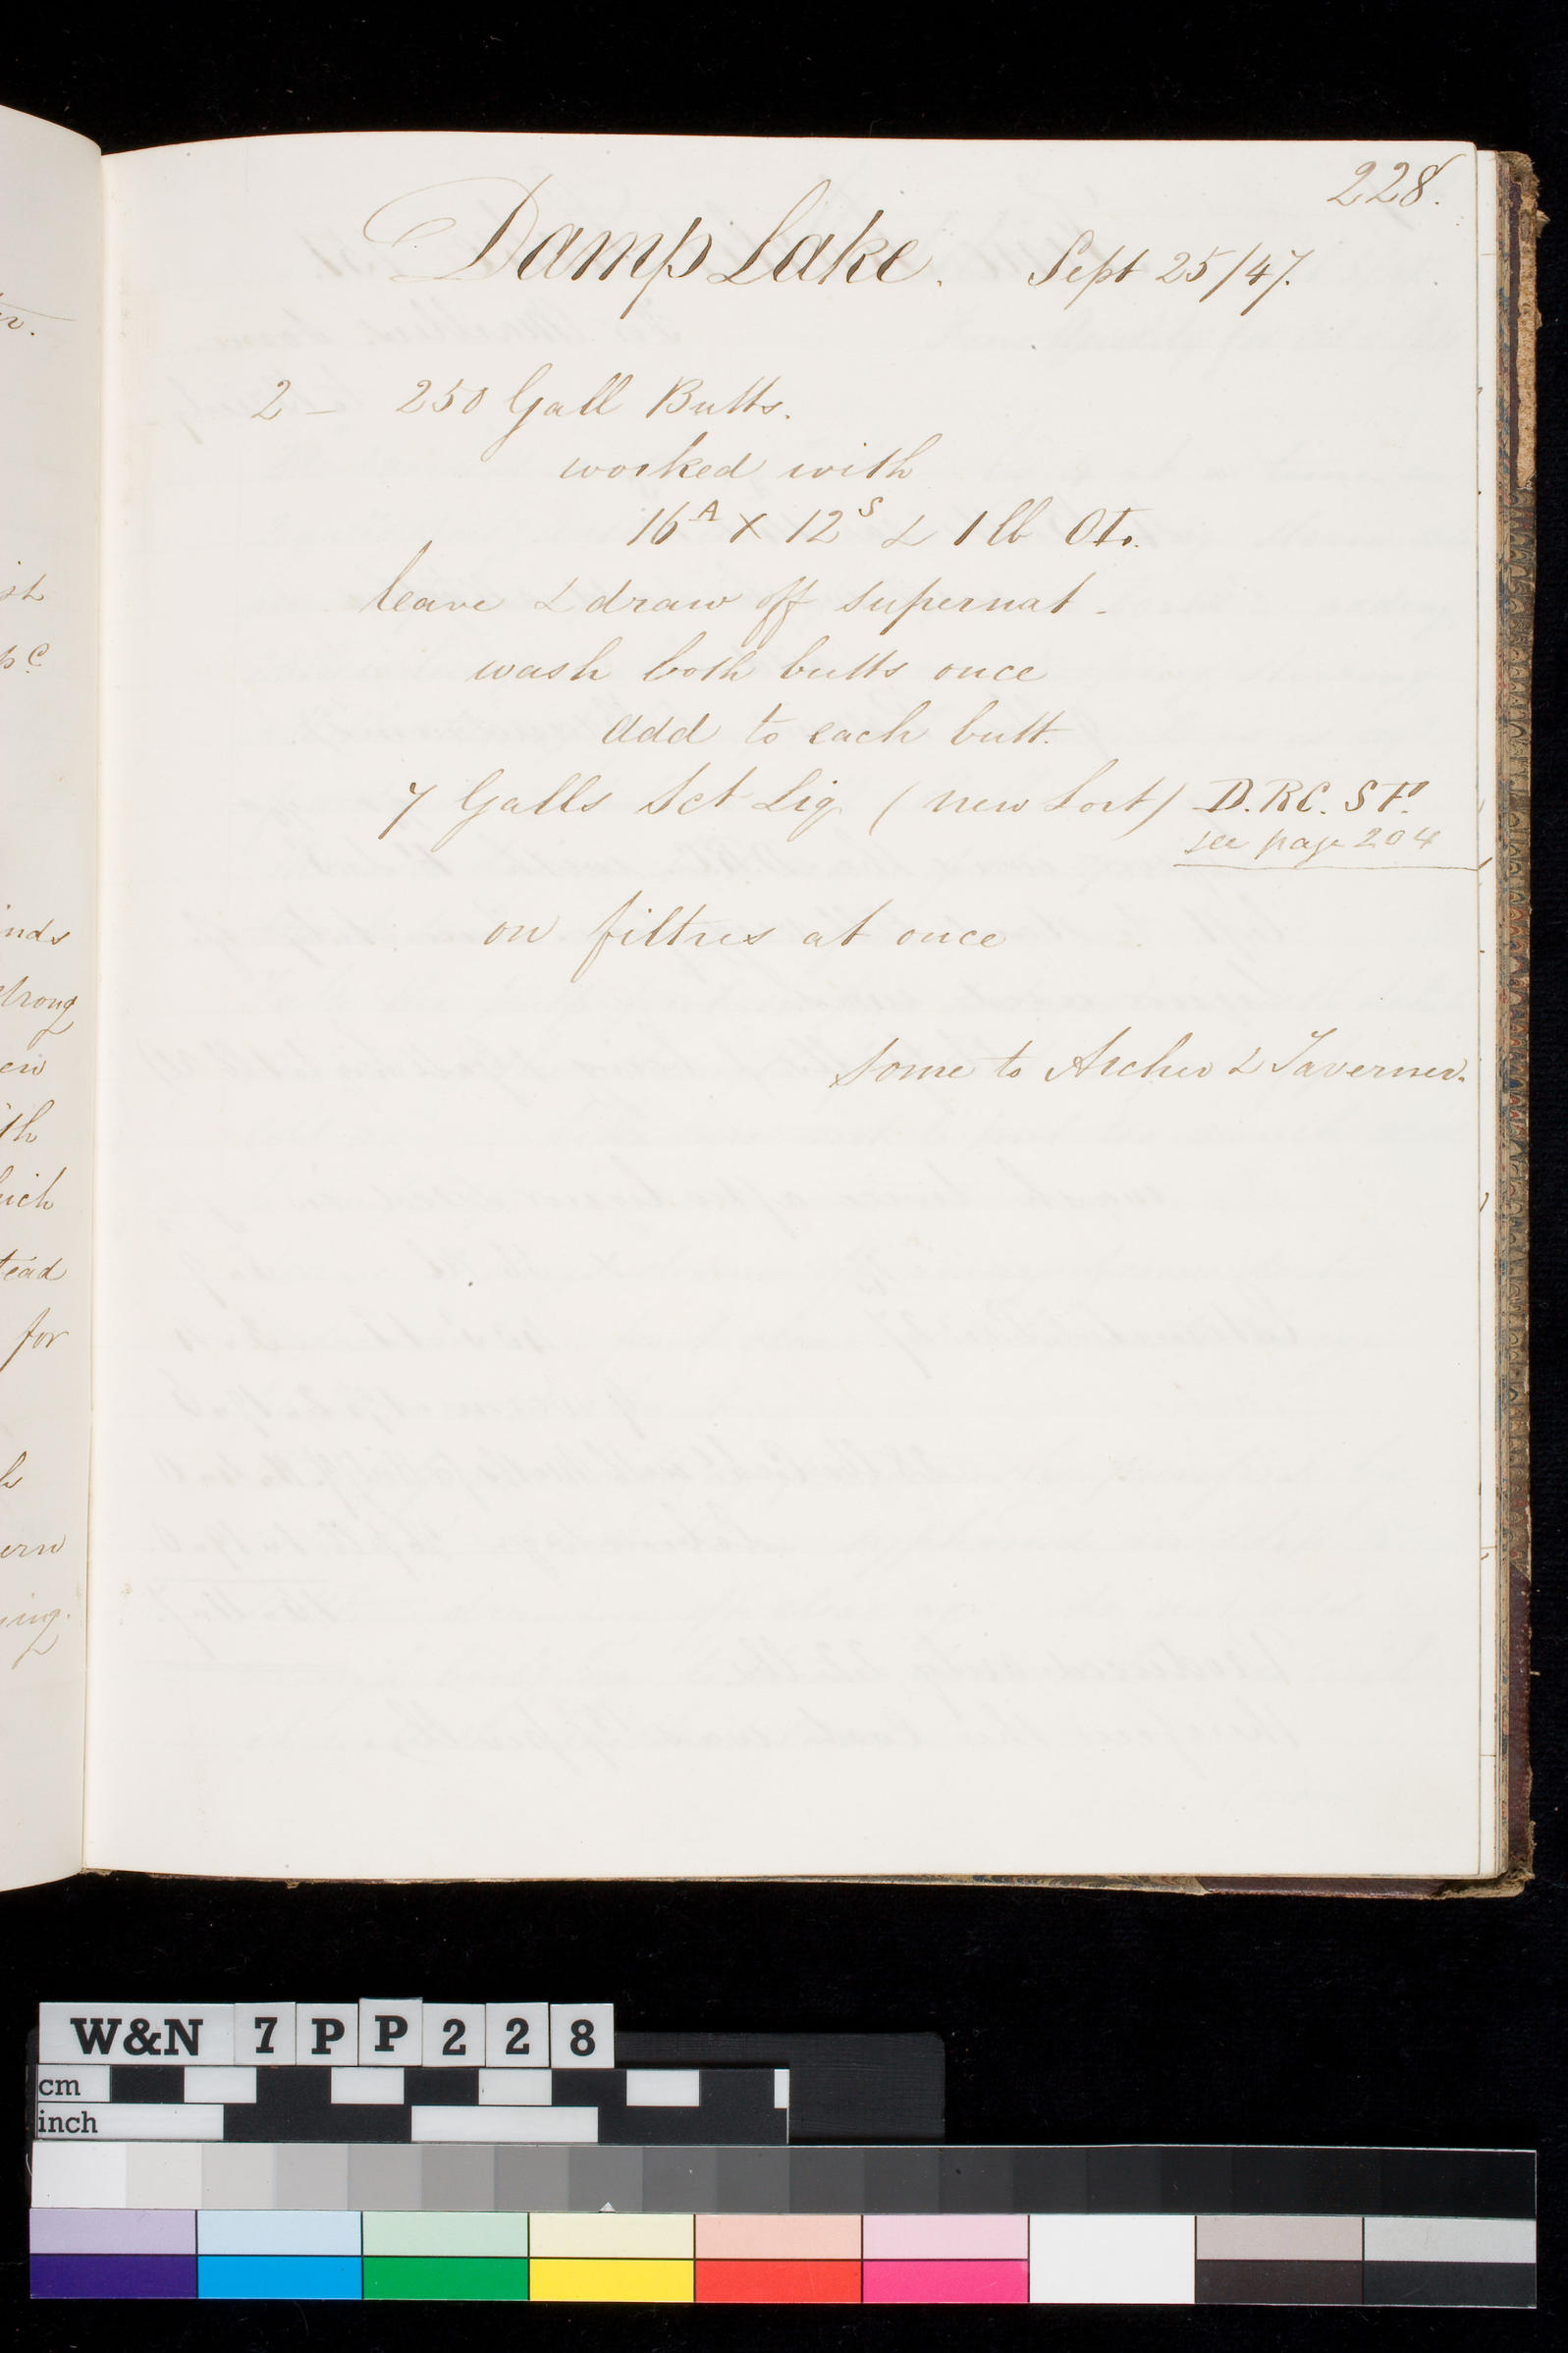 228.
Damp Lake. Sept 25/47.
2 - 250 Gall Butts.
worked with
16 A X 12 S & 1 lb Ot.
leave & draw off supernat.
wash both butts once
Add to each butt.
7 Galls Sct Liq (new Sort) D.RC. ST.
see page 204
on filtres at once
Some to Archer & Taverner.
nds
strong
en
th
hich
tead
for
ern
ing.
W&N 7PP228
cm
inch